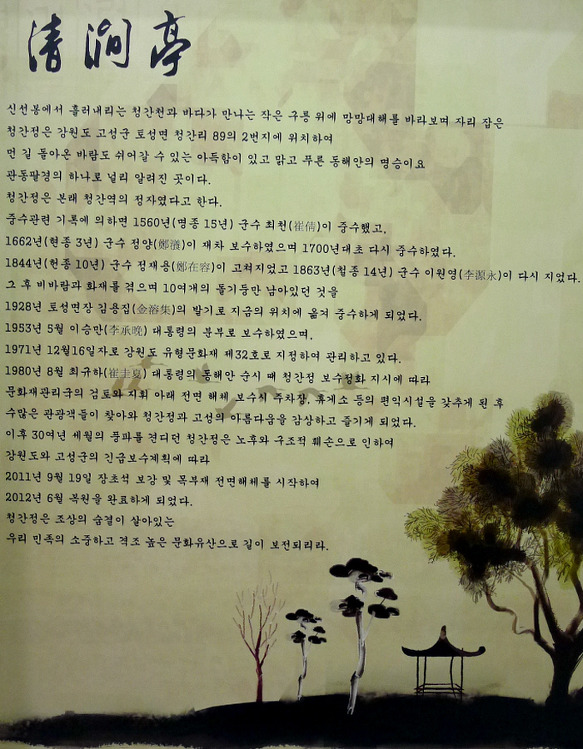 清澗亭
신선봉에서 흘러내리는 청간천과 바다가 만나는 작은 구릉 위에 망망대해를 바라보며 자리 잡은
청간정은 강원도 고성군 토성면 청간리 89의 2번지에 위치하여
먼 길 돌아온 바람도 쉬어갈 수 있는 아득함이 있고 맑고 푸른 동해안의 명승이요
관동팔경의 하나로 널리 알려진 곳이다.
청간정은 본래 청간역의 정자였다고 한다.
중수관련 기록에 의하면 1560년(명종 15년) 군수 최천(崔倩)이 중수했고,
1662년(현종 3년) 군수 정양(鄭瀁)이 재차 보수하였으며 1700년대초 다시 중수하였다.
1844년(헌종 10년) 군수 정재용(鄭在容)이 고쳐지었고 1863년(철종 14년) 군수 이원영(李源永)이 다시 지었다.
그 후 비바람과 화재를 겪으며 10여개의 돌기둥만 남아있던 것을
1928년 토성면장 김용집(金溶集)의 발기로 지금의 위치에 옮겨 중수하게 되었다.
1953년 5월 이승만(李承晩) 대통령의 분부로 보수하였으며,
1971년 12월16일자로 강원도 유형문화재 제32호로 지정하여 관리하고 있다.
1980년 8월 최규하(崔圭夏) 대통령의 동해안 순시 때 청간정 보수정화 지시에 따라
문화재관리국의 검토와 지휘 아래 전면 해체 보수시 주차장, 휴게소 등의 편익시설을 갖추게 된 후
수많은 관광객들이 찾아와 청간정과 고성의 아름다움을 감상하고 즐기게 되었다.
이후 30여년 세월의 풍파를 견디던 청간정은 노후와 구조적 훼손으로 인하여
강원도와 고성군의 긴급보수계획에 따라
2011년 9월 19일 장초석 보강 및 목부재 전면해체를 시작하여
2012년 6월 복원을 완료하게 되었다.
청간정은 조상의 숨결이 살아있는
우리 민족의 소중하고 격조 높은 문화유산으로 길이 보전되리라.